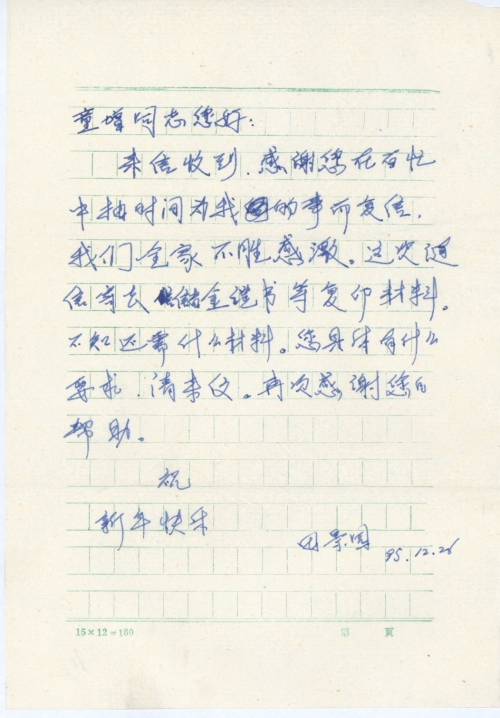 童增同志您好：
来信收到，感谢您在百忙
中抽时间为我的事而复信，
我们全家不胜感激。这次随
信寄去 储金证书等复印材料。
不知还需什么材料。您具体有什么
要求，请来仪。再次感谢您的
帮助。
祝
新年快乐
田景国 95.12.26
15×12=180 第 页